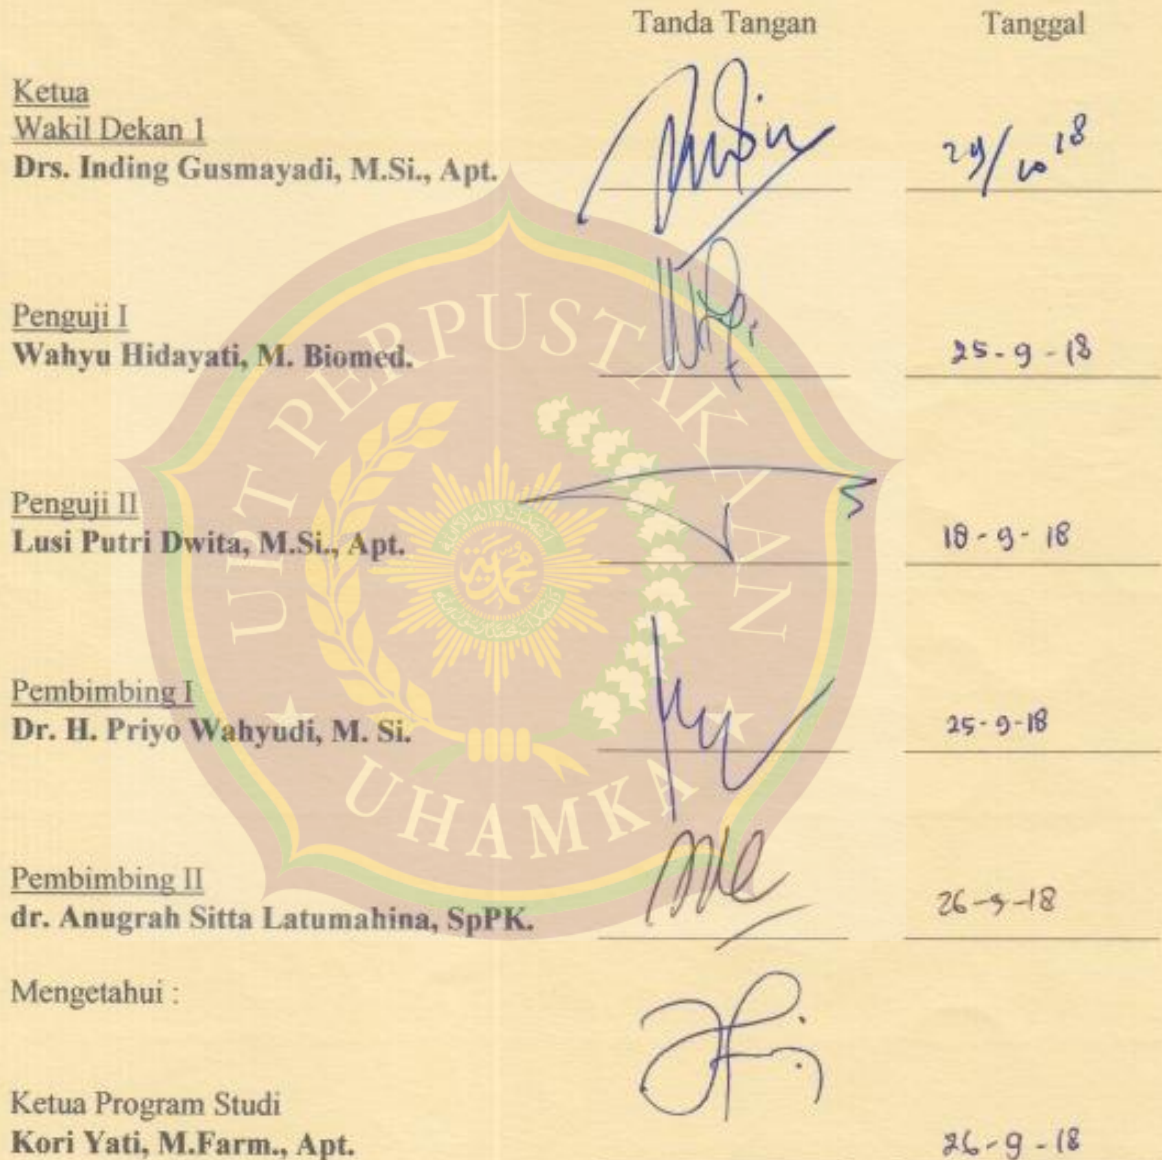 Tanda Tangan Tanggal
Ketua
Wakil Dekan 1
Drs. Inding Gusmayadi, M.Si., Apt.
29/10 18
Penguji I
Wahyu Hidayati, M. Biomed.
25-9-18
Penguji II
Lusi Putri Dwita, M.Si., Apt.
18-9-18
Pembimbing I
Dr. H. Priyo Wahyudi, M. Si.
25-9-18
Pembimbing II
dr. Anugrah Sitta Latumahina, SpPK.
26-9-18
Mengetahui :
Ketua Program Studi
Kori Yati, M.Farm., Apt.
26-9-18
UPT PERPUSTAKAAN
UHAMKA